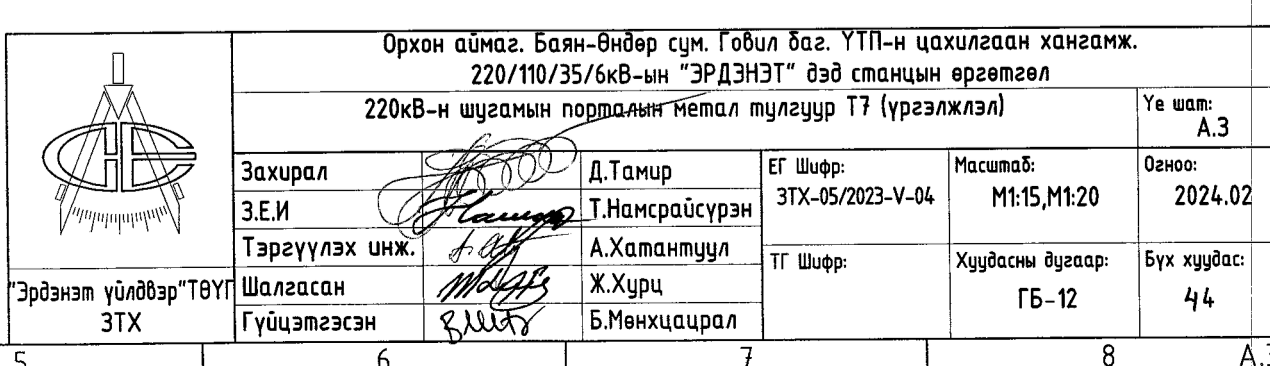 Орхон аймаг. Баян-Өндөр сум. Говил баг. ҮТП-н цахилгаан хангамж.
220/110/35/6кВ-ын "ЭРДЭНЭТ" дэд станцын өргөтгөл
220кВ-н шугамын порталын метал тулгуур Т7 (үргэлжлэл)
Үе шат:
А.3
Захирал Д.Тамир
З.Е.И Т.Намсрайсүрэн
Тэргүүлэх инж. А.Хатантуул
Шалгасан Ж.Хурц
Гүйцэтгэсэн Б.Мөнхцацрал
ЕГ Шифр:
ЗТХ-05/2023-V-04
Масштаб:
М1:15,М1:20
Огноо:
2024.02
ТГ Шифр:
Хуудасны дугаар:
ГБ-12
Бүх хуудас:
44
"Эрдэнэт үйлдвэр"ТӨҮГ
ЗТХ
5 6 7 8 А.3